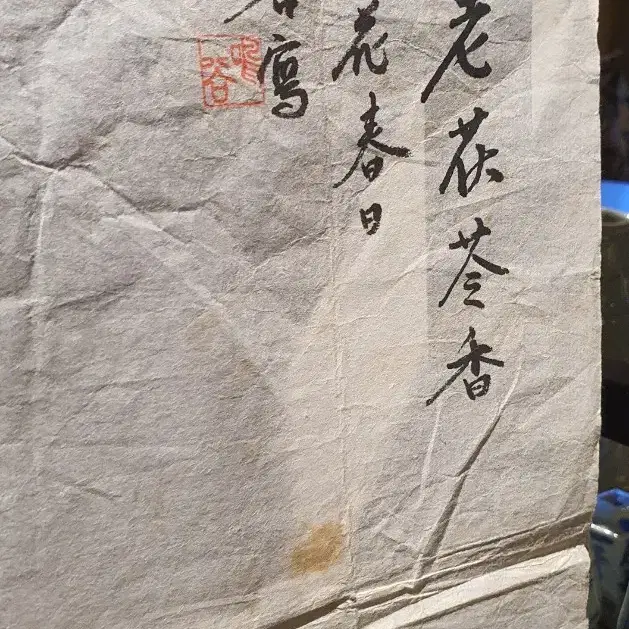 老茯苓香
花春日
寫
谷